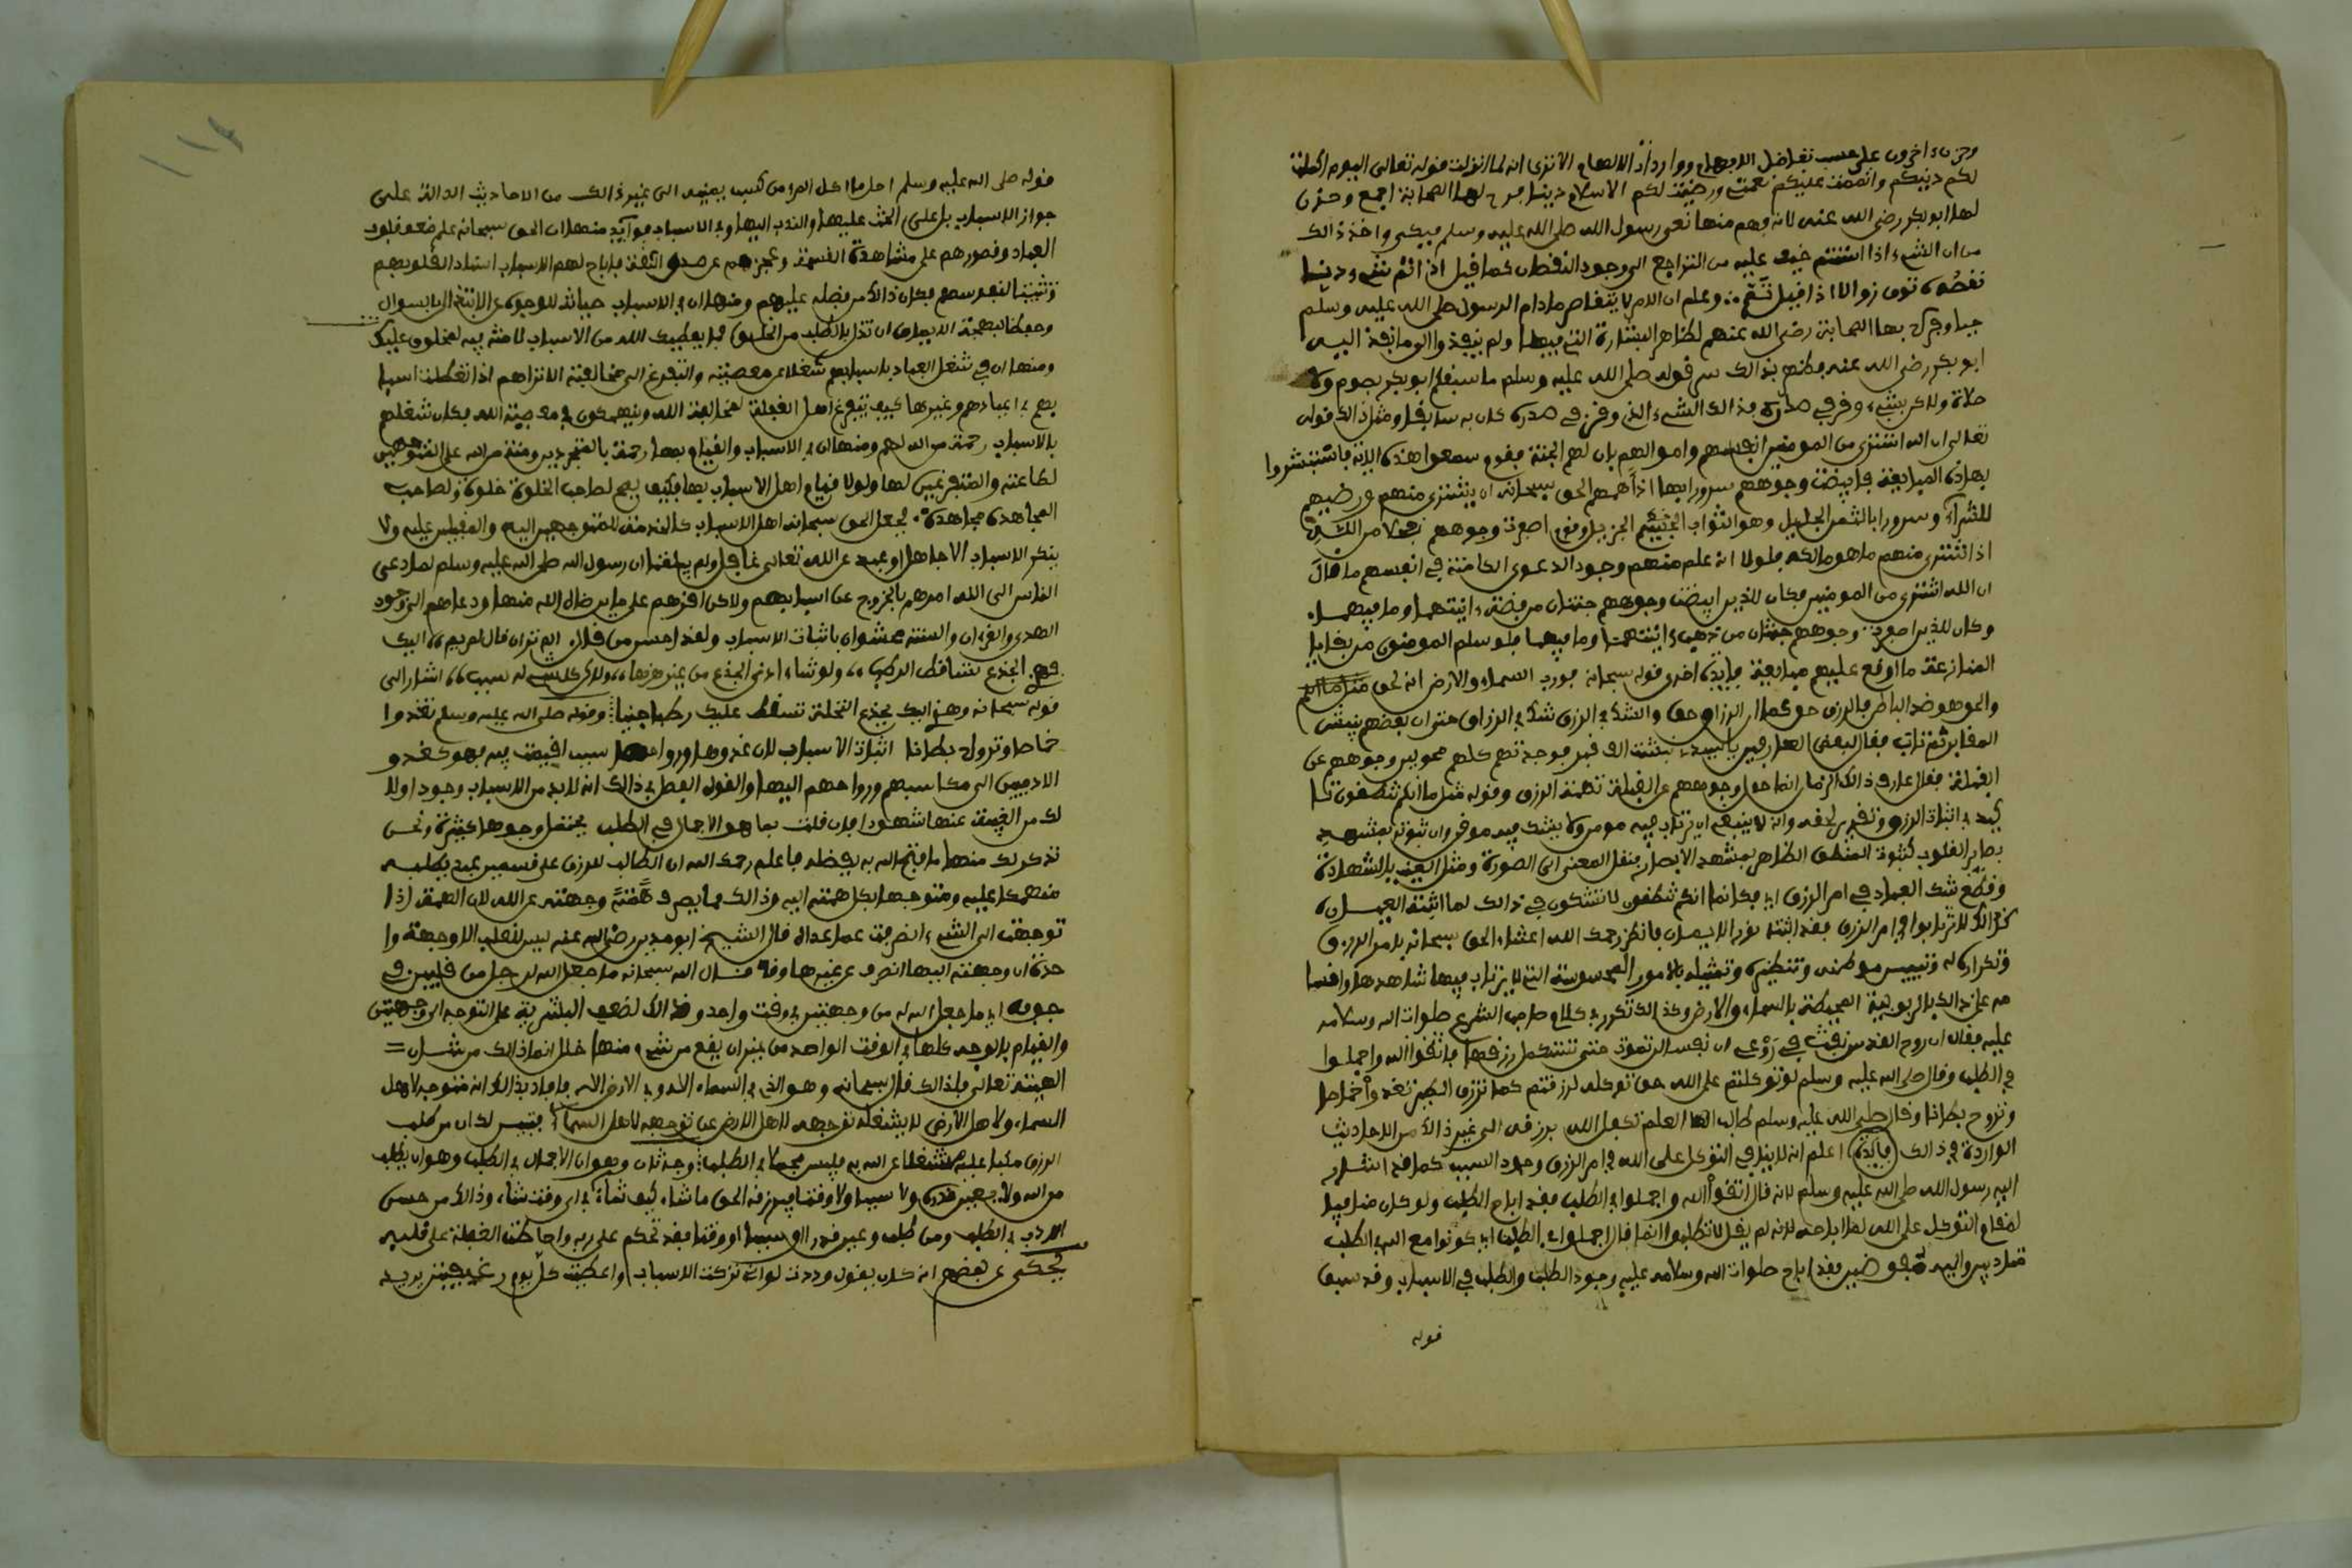 وحزن ءاخرون على حسب تفاضل الافهام وواردات الالهام الا ترى انه لما انزلت قوله تعالى اليوم اكملت
لكم دينكم واتممت عليكم نعمتي ورضيت لكم الاسلام دينا فرح لها الصحابة اجمع وحزن
لها ابو بكر رضى الله عنه لانه فهم منها نعي رسول الله صلى الله عليه وسلم فبكى واخذ ذالك
من ان الشيء اذا استتم خيف عليه من التراجع الى وجود النقصان كما قيل اذا تم شيء دنا
نقصه توق زوالا اذا قيل تم وعلم ان الامر لا يتناقص ما دام الرسول صلى الله عليه وسلم
حيا وفرح بها الصحابة رضى الله عنهم لظاهر البشارة التي فيها ولم ينفذوا الى ما نفذ اليه
ابو بكر رضى الله عنه فظهر بذالك سر قوله صلى الله عليه وسلم ما سبقكم ابو بكر بصوم ولا
صلاة ولاكن بشيء وقر في صدره فذالك الشيء الذي وقر في صدره كان به سابقا ومثل ذالك قوله
تعالى ان الله اشترى من المومنين انفسهم واموالهم بان لهم الجنة فقوم سمعوا هذه الاية فاستبشروا
بهاذه المبايعة فابيضت وجوههم سرورا بها اذ اهلهم الحق سبحانه ان يشتري منهم ورضيهم
للشراء وسرورا بالثمن الجليل وهو الثواب الجزيل وقوم اصفرت وجوههم خجلا من الله
اذ اشترى منهم ما هو مالكه فلولا انه علم منهم وجود الدعوى الكامنة في انفسهم ما قال
ان الله اشترى من المومنين فكان للذين ابيضت وجوههم جنتان من فضة ءانيتهما وما فيهما
وكان للذين اصفرت وجوههم جنتان من ذهب ءانيتهما وما فيهما فلو سلم المومنون من بقايا
المنازعة ما اوقع عليهم مبايعة فايدة اخرى قوله سبحانه فورب السماء والارض انه لحق مثل ما انكم
والحق هو ضد الباطل فالرزق حق كما ان الرزاق حق والشك في الرزق شك في الرزاق حتى ان بعضهم نبش
المقابر ثم تاب فقال لبعض العارفين يا سيدي نبشت الف قبر فوجدتهم كلهم محولين وجوههم عن
القبلة فقال عارف ذالك الزمان انما حول وجوههم عن القبلة تهمة الرزق وقوله مثل ما انكم تنطقون تا
كيد في اثبات الرزق وتقرير لحقه وانه لا ينبغي ان يرتاب فيه مومن ولا يشك فيه موقن وان ثبوته بمشهد
بصاير القلوب كثبوت المنطق الظاهر بمشهد الابصار فنقل المعنى الى الصورة ومثل الغيب بالشهادة
وقطع شك العباد في امر الرزق اي فكما انكم تنطقون لا تشكون في ذالك لما اثبته العيان
كذالك لا ترتابوا في امر الرزق فقد اثبته نور الايمان فانظر رحمك الله اعتناء الحق سبحانه بامر الرزق
وتكراره له وتبيين مواطنه وتنظيره وتمثيله بالامور المحسوسة التي لا يرتاب فيها شاهدها واقسا
مه على ذالك بالربوبية المحيطة بالسماء والارض وكذالك تكرر في كلام صاحب الشرع صلوات الله وسلامه
عليه فقال ان روح القدس نفث في روعي ان نفسا لن تموت حتى تستكمل رزقها فاتقوا الله واجملوا
في الطلب وقال صلى الله عليه وسلم لو توكلتم على الله حق توكله لرزقتم كما ترزق الطير تغدوا خماصا
وتروح بطانا وقال صلى الله عليه وسلم طالب العلم تكفل الله برزقه الى غير ذالك من الاحاديث
الواردة في ذالك فايدة اعلم انه لا ينافي التوكل على الله في امر الرزق وجود السبب كما قد اشار
اليه رسول الله صلى الله عليه وسلم لانه قال اتقوا الله واجملوا في الطلب فقد اباح الطلب ولو كان منافيا
لمقام التوكل على الله لما اباحه لانه لم يقل لا تطلبوا انما قال اجملوا في الطلب اي كونوا مع الله في الطلب
متادبين واليه مفوضين فقد اباح صلوات الله وسلامه عليه وجود الطلب والطلب في الاسباب وقد سبق
قوله
قوله صلى الله عليه وسلم احل ما اكل المرء من كسب يمينه الى غير ذالك من الاحاديث الدالة على
جواز الاسباب بل على الحث عليها والندب اليها وفي الاسباب فوايد منها ان الحق سبحانه علم ضعف قلوب
العباد وقصورهم على مشاهدة القسمة وعجزهم عن صدق الثقة فاباح لهم الاسباب اسنادا لقلوبهم
وتثبيتا لنفوسهم فكان ذالك من فضله عليهم ومنها ان في الاسباب صيانة للوجوه عن الابتذال بالسوال
وحفظا لبهجة الايمان ان تزال بالطلب من الخلق فما يعطيك الله من الاسباب لا منة فيه لمخلوق عليك
ومنها ان في شغل العباد باسبابهم شغلا عن معصيته والتفرغ الى مخالفته الا تراهم اذا تعطلت اسبا
بهم في اعيادهم وغيرها كيف يتفرغ اهل الغفلة لمخالفة الله وينهمكون في معصية الله فكان شغلهم
بالاسباب رحمة من الله لهم ومنها ان في الاسباب والقيام بها رحمة بالمتجردين ومنة من الله على المتوجهين
لطاعته والمتفرغين لها ولولا قيام اهل الاسباب بها فكيف يصح لصاحب الخلوة خلوة ولصاحب
المجاهدة مجاهدة فجعل الحق سبحانه اهل الاسباب كالخدمة للمتوجهين اليه والمقبلين عليه ولا
ينكر الاسباب الا جاهل او عبد عن الله تعالى غافل ولم يبلغنا ان رسول الله صلى الله عليه وسلم لما دعى
الناس الى الله امرهم بالخروج عن اسبابهم ولاكن اقرهم على ما يرضاه الله منها ودعاهم الى وجود
الهدى والقرءان والسنة محشوان باثبات الاسباب ولقد احسن من قال الم تر ان الله قال لمريم اليك
فهزي الجذع تساقط الرطب ولو شاء ادنى الجذع من غير هزها ولاكن كل شيء له سبب اشار الى
قوله سبحانه وهزي اليك بجذع النخلة تسقط عليك رطبا جنيا وقوله صلى الله عليه وسلم تغدوا
خماصا وتروح بطانا اثبات الاسباب لان غدوها ورواحها سبب اقيمت فيه فهو كغدو
الادميين الى مكاسبهم ورواحهم اليها والقول الفصل في ذالك انه لا بد من الاسباب وجودا ولا بد
لك من الغيبة عنها شهودا فان قلت فما هو الاجمال في الطلب يحتمل وجوها كثيرة ونحن
نذكر لك منها ما فتح الله به بفضله فاعلم رحمك الله ان الطالب للرزق على قسمين عبد يطلبه
منهمكا عليه ومتوجها بكل همته اليه وذالك مما يصرف همته وجهته عن الله لان الهمة اذا
توجهت الى الشيء انصرفت عما عداه قال الشيخ ابو مدين رضى الله عنه ليس للقلب الا وجهة وا
حدة ان وجهته اليها انصرف عن غيرها وقد قال الله سبحانه ما جعل الله لرجل من قلبين في
جوفه اي ما جعل الله له من وجهتين في وقت واحد وذالك لضعف البشرية على التوجه الى وجهتين
والقيام بالوجه كلها في الوقت الواحد من غير ان يقع من شيء منها خلل انما ذالك من شان
الهيته تعالى فلذالك قال سبحانه وهو الذي في السماء اله وفي الارض اله فافاد بذالك انه متوجه لاهل
السماء ولاهل الارض لا يشغله توجهه لاهل الارض عن توجهه لاهل السماء فتبين لك ان من طلب
الرزق مكبا عليه مشتغلا عن الله به فليس مجملا في الطلب وجه ثان وهو ان الاجمال في الطلب وهو ان يطلب
من الله ولا يعين قدرا ولا سببا ولا وقتا فيرزقه الحق ما شاء كيف شاء في اي وقت شاء وذالك من حسن
الادب في الطلب ومن طلب وعين قدرا او سببا او وقتا فقد تحكم على ربه واحاطت الغفلة على قلبه
يحكى عن بعضهم انه كان يقول وددت لو اني تركت الاسباب واعطيت كل يوم رغيفين يريد